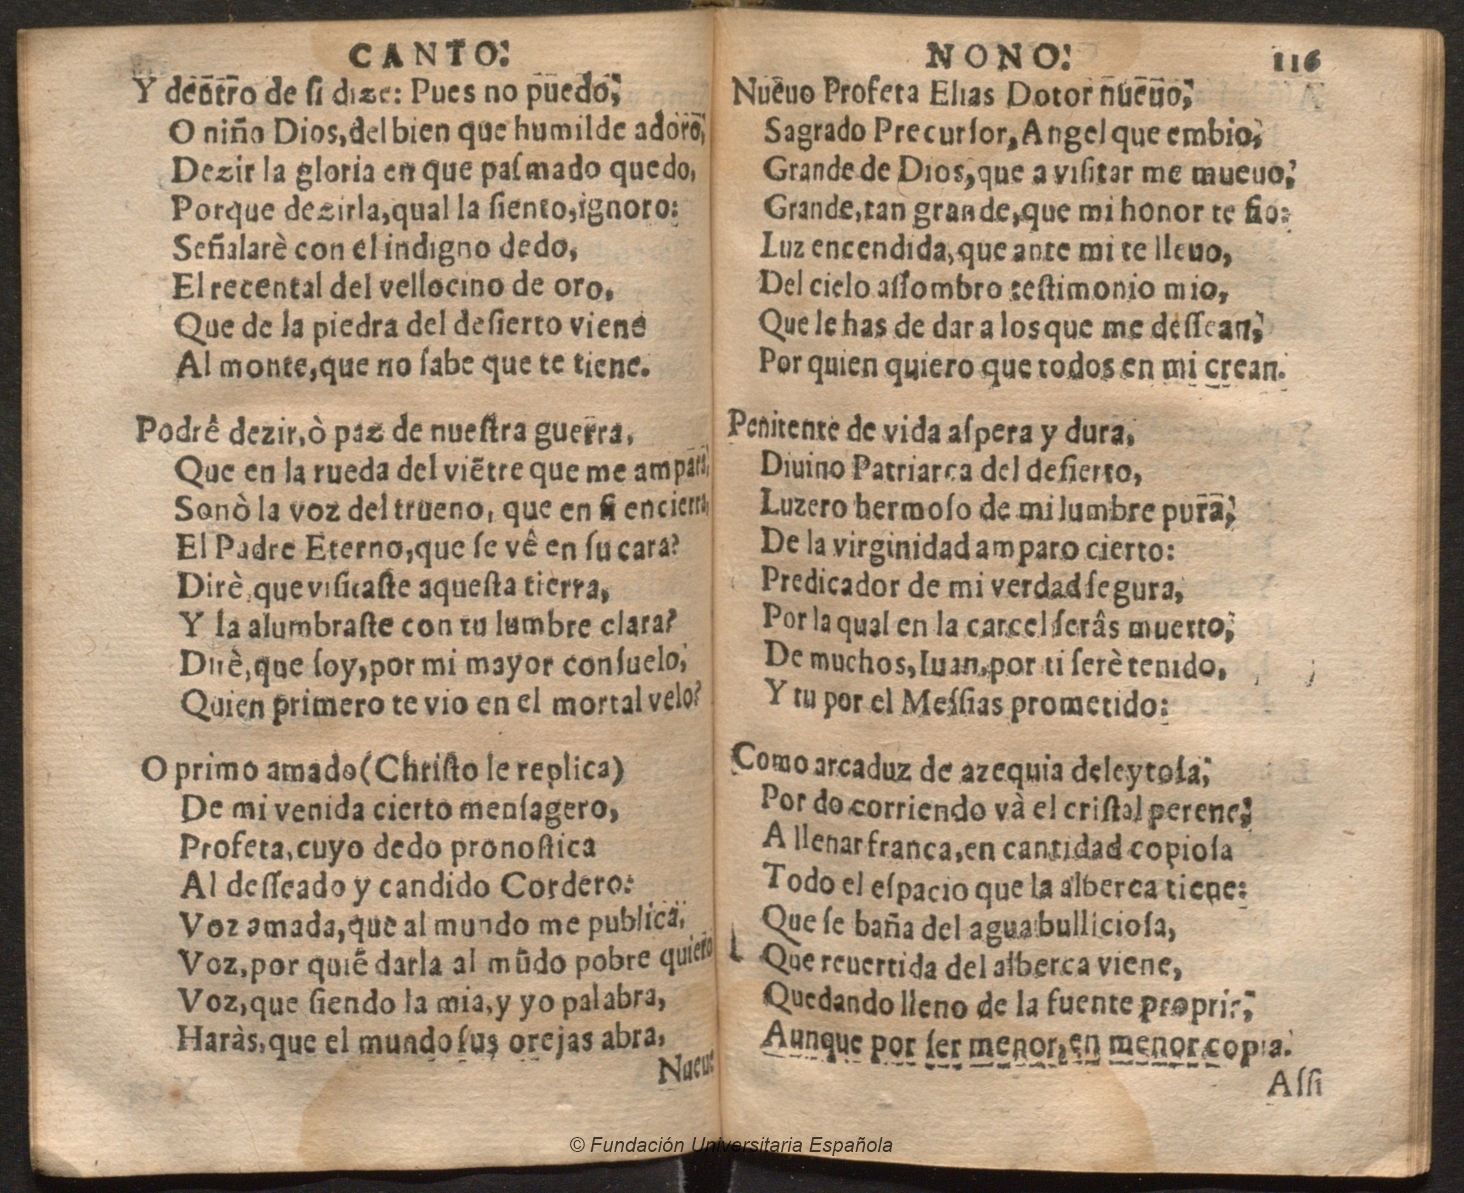 CANTO.
Y dentro de si dize: Pues no puedo,
O niño Dios, del bien que humilde adoro,
Dezir la gloria en que paſmado quedo,
Porque dezirla, qual la ſiento, ignoro:
Señalarè con el indigno dedo,
El recental del vellocino de oro,
Que de la piedra del deſierto viene
Al monte, que no ſabe que te tiene.
Podrè dezir, ò paz de nueſtra guerra,
Que en la rueda del viẽtre que me ampara,
Sonò la voz del trueno, que en ſi encierra,
El Padre Eterno, que ſe vê en ſu cara?
Dirè, que viſitaſte aqueſta tierra,
Y la alumbraſte con tu lumbre clara?
Dirè, que ſoy, por mi mayor conſuelo,
Quien primero te vio en el mortal velo?
O primo amado (Chriſto le replica)
De mi venida cierto menſagero,
Profeta, cuyo dedo pronoſtica
Al deſſeado y candido Cordero:
Voz amada, que al mundo me publica,
Voz, por quiẽ darla al mũdo pobre quiero
Voz, que ſiendo la mia, y yo palabra,
Haràs, que el mundo ſus orejas abra,
Nueuo
NONO. 116
Nueuo Profeta Elias Dotor nueuo,
Sagrado Precurſor, Angel que embio,
Grande de Dios, que a viſitar me mueuo,
Grande, tan grande, que mi honor te fio:
Luz encendida, que ante mi te lleuo,
Del cielo aſſombro teſtimonio mio,
Que le has de dar a los que me deſſean,
Por quien quiero que todos en mi crean.
Penitente de vida aſpera y dura,
Diuino Patriarca del deſierto,
Luzero hermoſo de mi lumbre pura,
De la virginidad amparo cierto:
Predicador de mi verdad ſegura,
Por la qual en la carcel ſerâs muerto,
De muchos, Iuan, por ti ſerè tenido,
Y tu por el Meſsias prometido:
Como arcaduz de azequia deleytoſa,
Por do corriendo và el criſtal perene,
A llenar franca, en cantidad copioſa
Todo el eſpacio que la alberca tiene:
Que ſe baña del agua bullicioſa,
Que reuertida del alberca viene,
Quedando lleno de la fuente propria,
Aunque por ſer menor, en menor copia.
Aſſi
© Fundación Universitaria Española